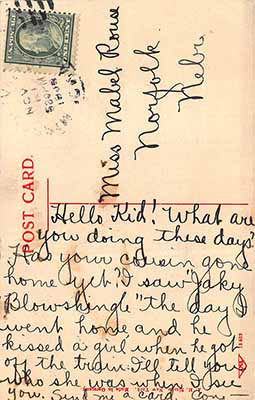 Miss Mabel Rouse
Norfolk
Nebr.
POST CARD.
Hello Kid! What are
you doing these days?
Has your cousin gone
home yet? I saw "Jaky
Blowshingle" the day I
went home and he
kissed a girl when he got
off the train. I'll tell you
who she was when I see
you. Send me a card. Con—